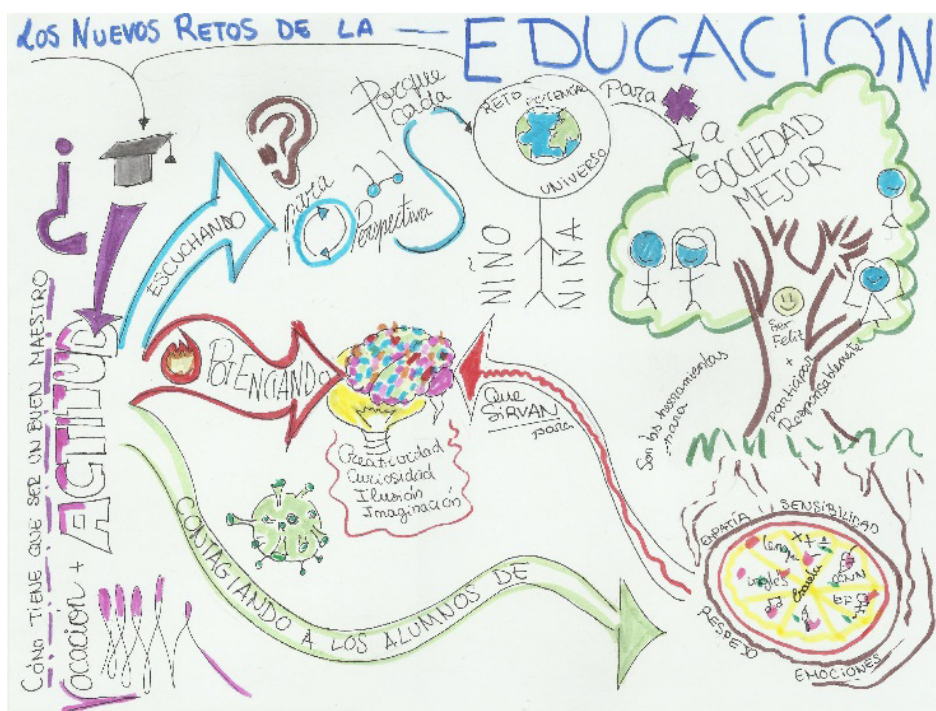 LOS NUEVOS RETOS DE LA — EDUCACIÓN
¿
CÓMO TIENE QUE SER UN BUEN MAESTRO
Vocación +
ACTITUD
ESCUCHANDO
Perspectiva
Porque
cada
RETO
POTENCIAL
UNIVERSO
NIÑO
NIÑA
Para
a
SOCIEDAD
MEJOR
Ser
Feliz
+
participar
Responsablemente
Son las herramientas
para
POTENCIANDO
Creatividad
Curiosidad
Ilusión
Imaginación
Que
SIRVAN
para
CONTAGIANDO A LOS ALUMNOS DE
EMPATÍA
SENSIBILIDAD
RESPEJO
EMOCIONES
Escuela
inglés